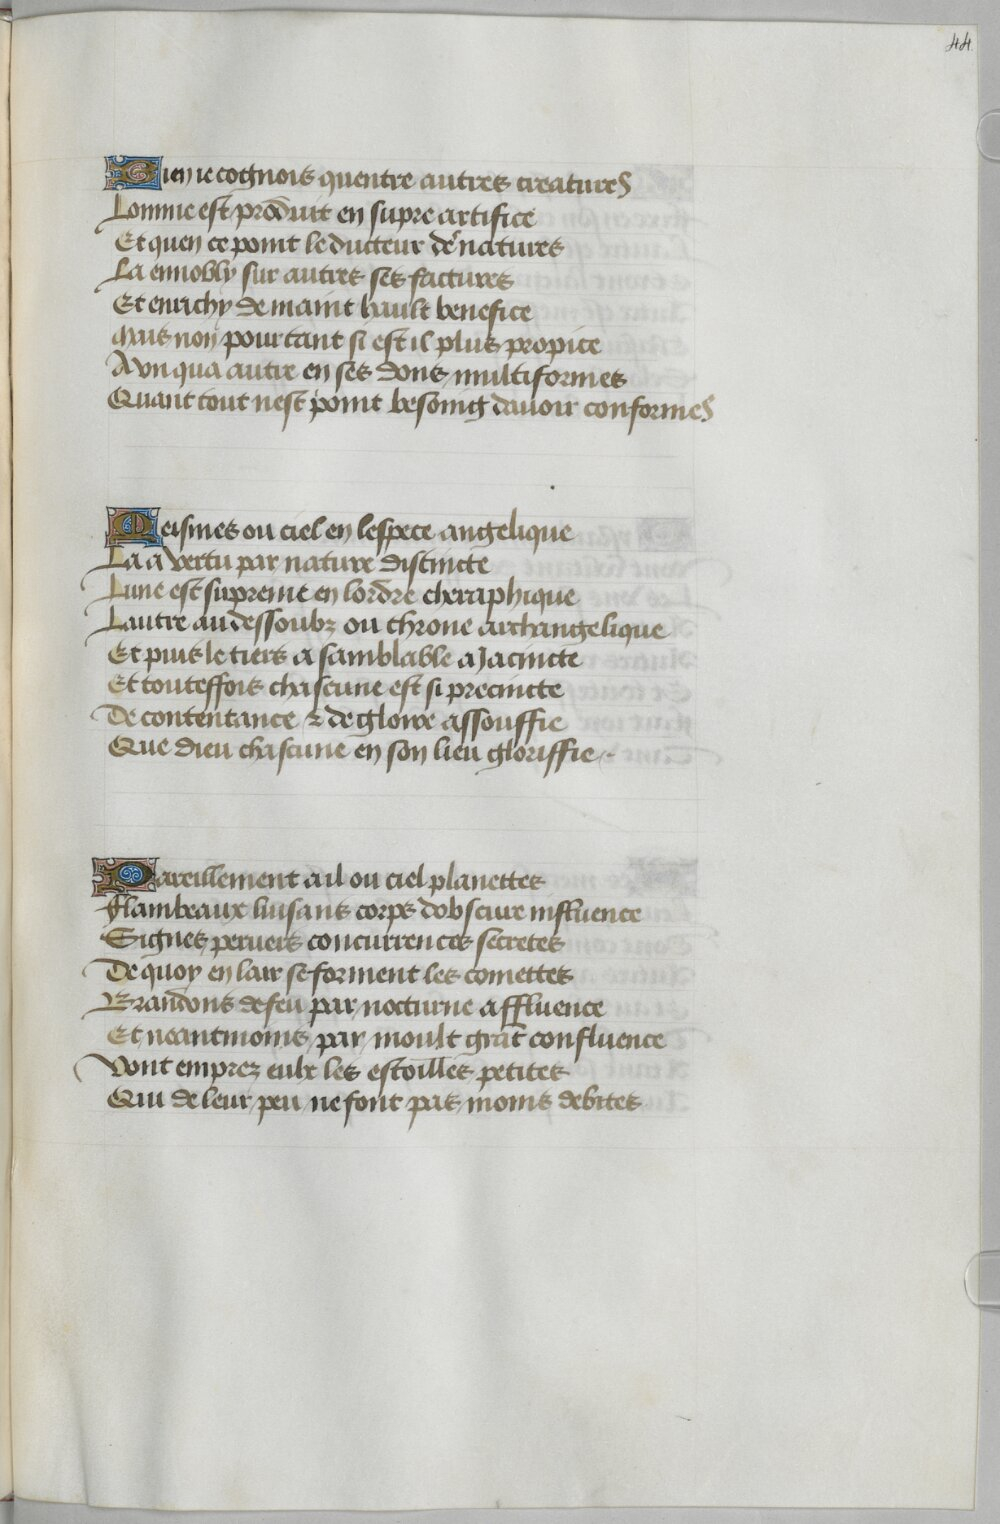 44
Bien ie cognois quentre autres creatures
Lomme est produit en supre artifice
Et quen ce point le ducteur de natures
La ennobly sur autres ses factures
Et enrichy de maint hault benefice
Mais non pourtant si est il plus propice
A vn qua autre en ses dons multiformes
Quant tout nest point besoing dauoir conformes
Meismes ou ciel en lespece angelique
La a vertu par nature distincte
Lune est supreme en lordre cheraphique
Lautre au dessoubz ou throne archangelique
Et puis le tiers a samblable a Jacincte
Et touteffois chascune est si precincte
De contentance & de gloire assouffie
Que dieu chascune en son lieu gloriffie
Pareillement a il ou ciel planettes
Flambeaux luisans corps dobscure influence
Signes peruers concurrences secretes
De quoy en lair se forment les comettes
Brandons de feu par nocturne affluence
Et neantmoins par moult grāt confluence
Vont emprez eulx les estoilles petites
Qui de leur peu ne font pas moins debites